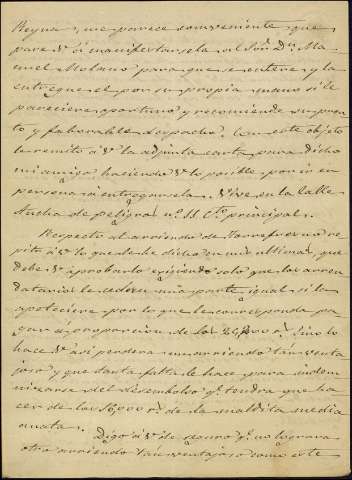 Reyna, me parece conveniente que
pase V. á manifestarsela al Sor. Dn. Ma-
nuel Molano para que se entere, y la
entregue el por su propia mano si le
pareciere oportuno y recomiende su pron-
to y faborable despacho. Con este objeto
le remito á V. la adjunta carta para dicho
mi amigo haciendo V. lo posible por ir en
persona á entregarsela. Vive en la Calle
Ancha de peligros nº 11 Cto. principal.
Respecto al arriendo de Torrefresno re
pito á V. lo que de he dicho en mi ultima, que
debe V. aprobarlo exijiendo solo que los arren
datarios le cedan una parte igual si la
apeteciere por lo que le corresponda pa
gar á proporcion de los 24,500 rs. Sino lo
hace V. asi perdera un arriendo tan venta
joso y que tanta falta le hace para indem
nizarse del desembolso qe. tendra que ha
cer de los 16,000 rs. de la maldita media
anata.
Digo á V. de seguro qe. no lograra
otro arriendo tan ventajoso como este